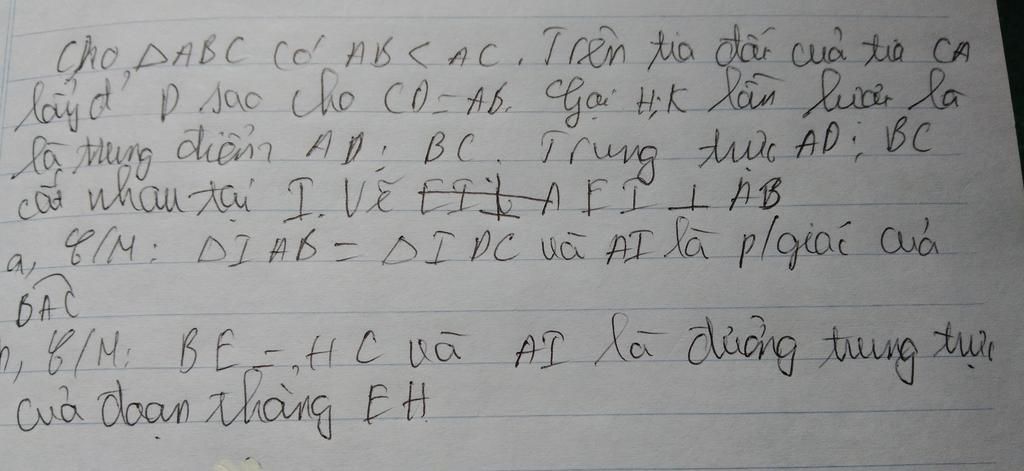 Cho △ABC có AB < AC. Trên tia đối của tia CA
lấy đ' D sao cho CD = AB. Gọi H; K lần lượt là
là trung điểm AD; BC. Trung trực AD; BC
cắt nhau tại I. Vẽ EI ⊥ A EI ⊥ AB
a, C/M: △IAB = △IDC và AI là p/giác của
BAC
b, C/M: BE = HC và AI là đường trung trực
của đoạn thẳng EH